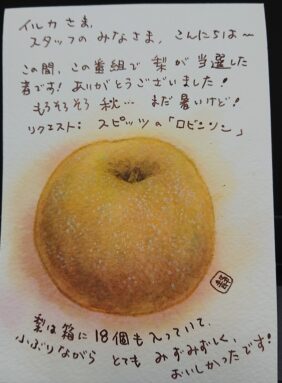 イルカさま、
スタッフのみなさま、こんにちは〜
この間、この番組で梨が当選した
者です！ありがとうございました！
もうそろそろ秋…まだ暑いけど！
リクエスト：スピッツの「ロビンソン」
梨は箱に18個も入っていて、
小ぶりながらとてもみずみずしく、
おいしかったです！